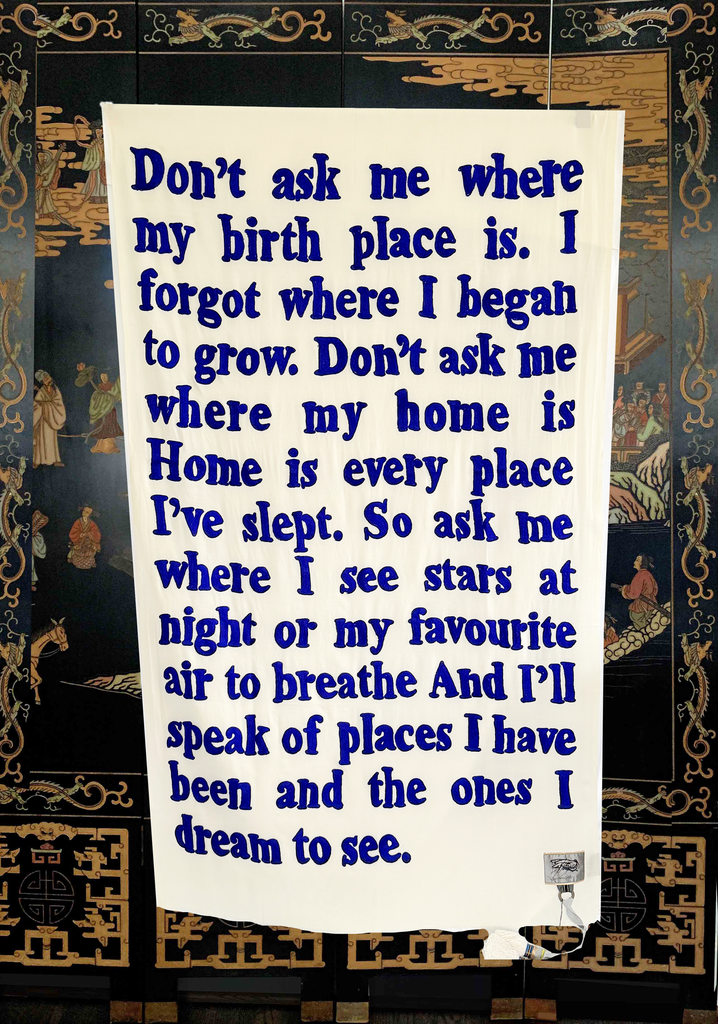 Don't ask me where
my birth place is. I
forgot where I began
to grow. Don't ask me
where my home is
Home is every place
I've slept. So ask me
where I see stars at
night or my favourite
air to breathe And I'll
speak of places I have
been and the ones I
dream to see.